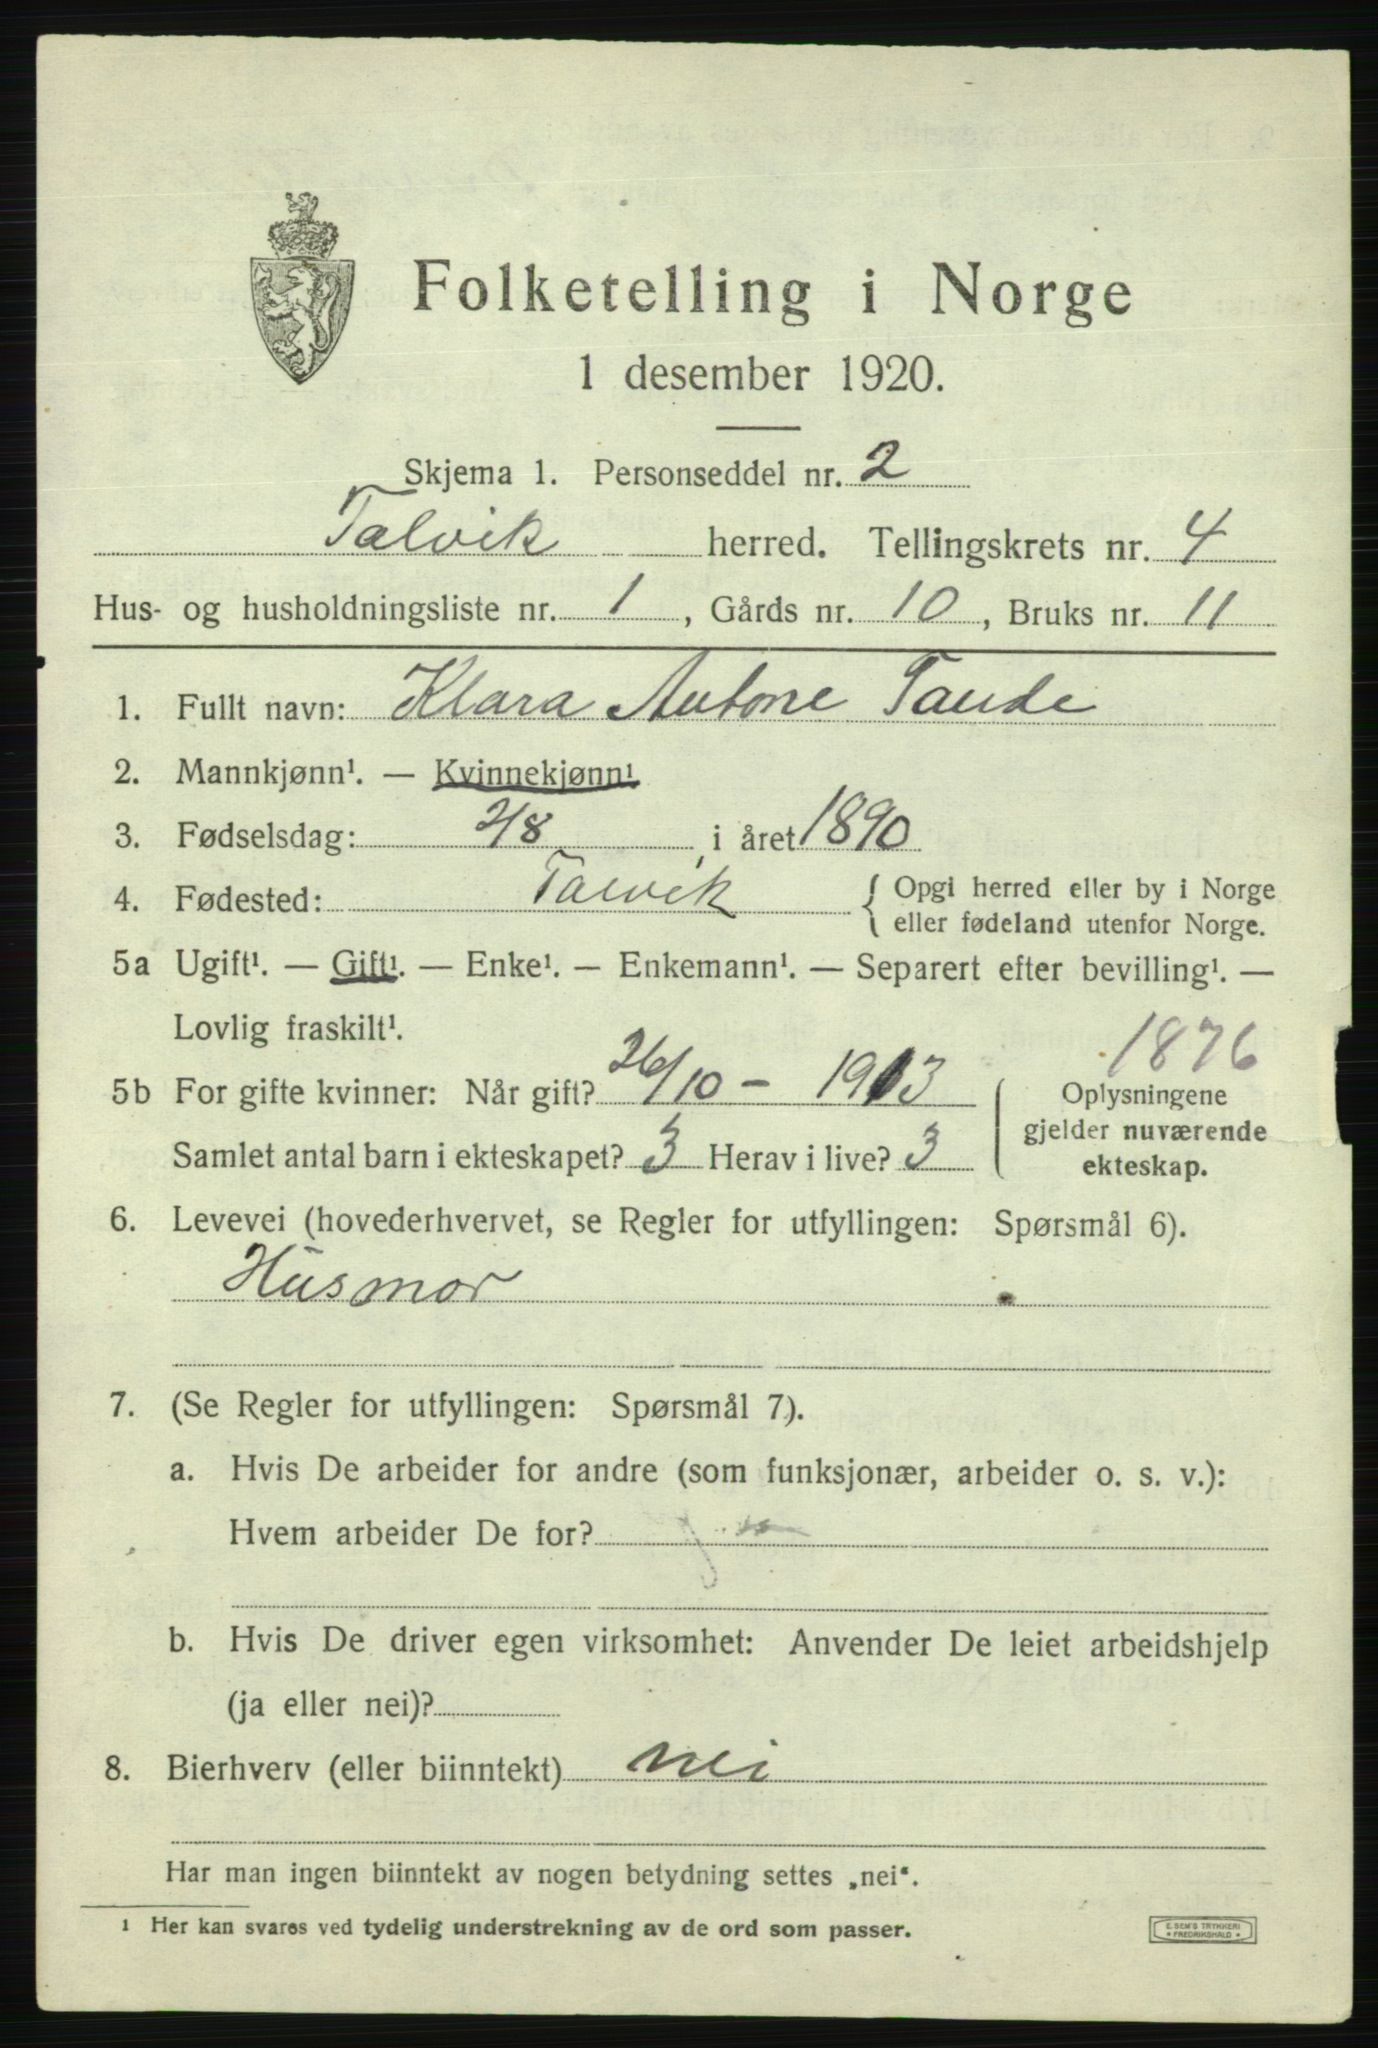 Folketelling i Norge
1 desember 1920.
Skjema 1. Personseddel nr. 2
Talvik herred. Tellingskrets nr. 4
Hus- og husholdningsliste nr. 1, Gårds nr. 10, Bruks nr. 11
1. Fullt navn: Klara Antone Tande
2. Mannkjønn¹. — Kvinnekjønn¹
3. Fødselsdag: 2/8, i året 1890
4. Fødested: Talvik { Opgi herred eller by i Norge
eller fødeland utenfor Norge.
5a Ugift¹. — Gift¹. — Enke¹. — Enkemann¹. — Separert efter bevilling¹. —
Lovlig fraskilt¹.
1876
5b For gifte kvinner: Når gift? 26/10 - 1913
Samlet antal barn i ekteskapet? 3 Herav i live? 3
Oplysningene
gjelder nuværende
ekteskap.
6. Levevei (hovederhvervet, se Regler for utfyllingen: Spørsmål 6).
Husmor
7. (Se Regler for utfyllingen: Spørsmål 7).
a. Hvis De arbeider for andre (som funksjonær, arbeider o. s. v.):
Hvem arbeider De for?
b. Hvis De driver egen virksomhet: Anvender De leiet arbeidshjelp
(ja eller nei)?
8. Bierhverv (eller biinntekt) nei
Har man ingen biinntekt av nogen betydning settes „nei“.
¹ Her kan svares ved tydelig understrekning av de ord som passer.
E. SEM'S TRYKKERI
* FREDRIKSHALD *